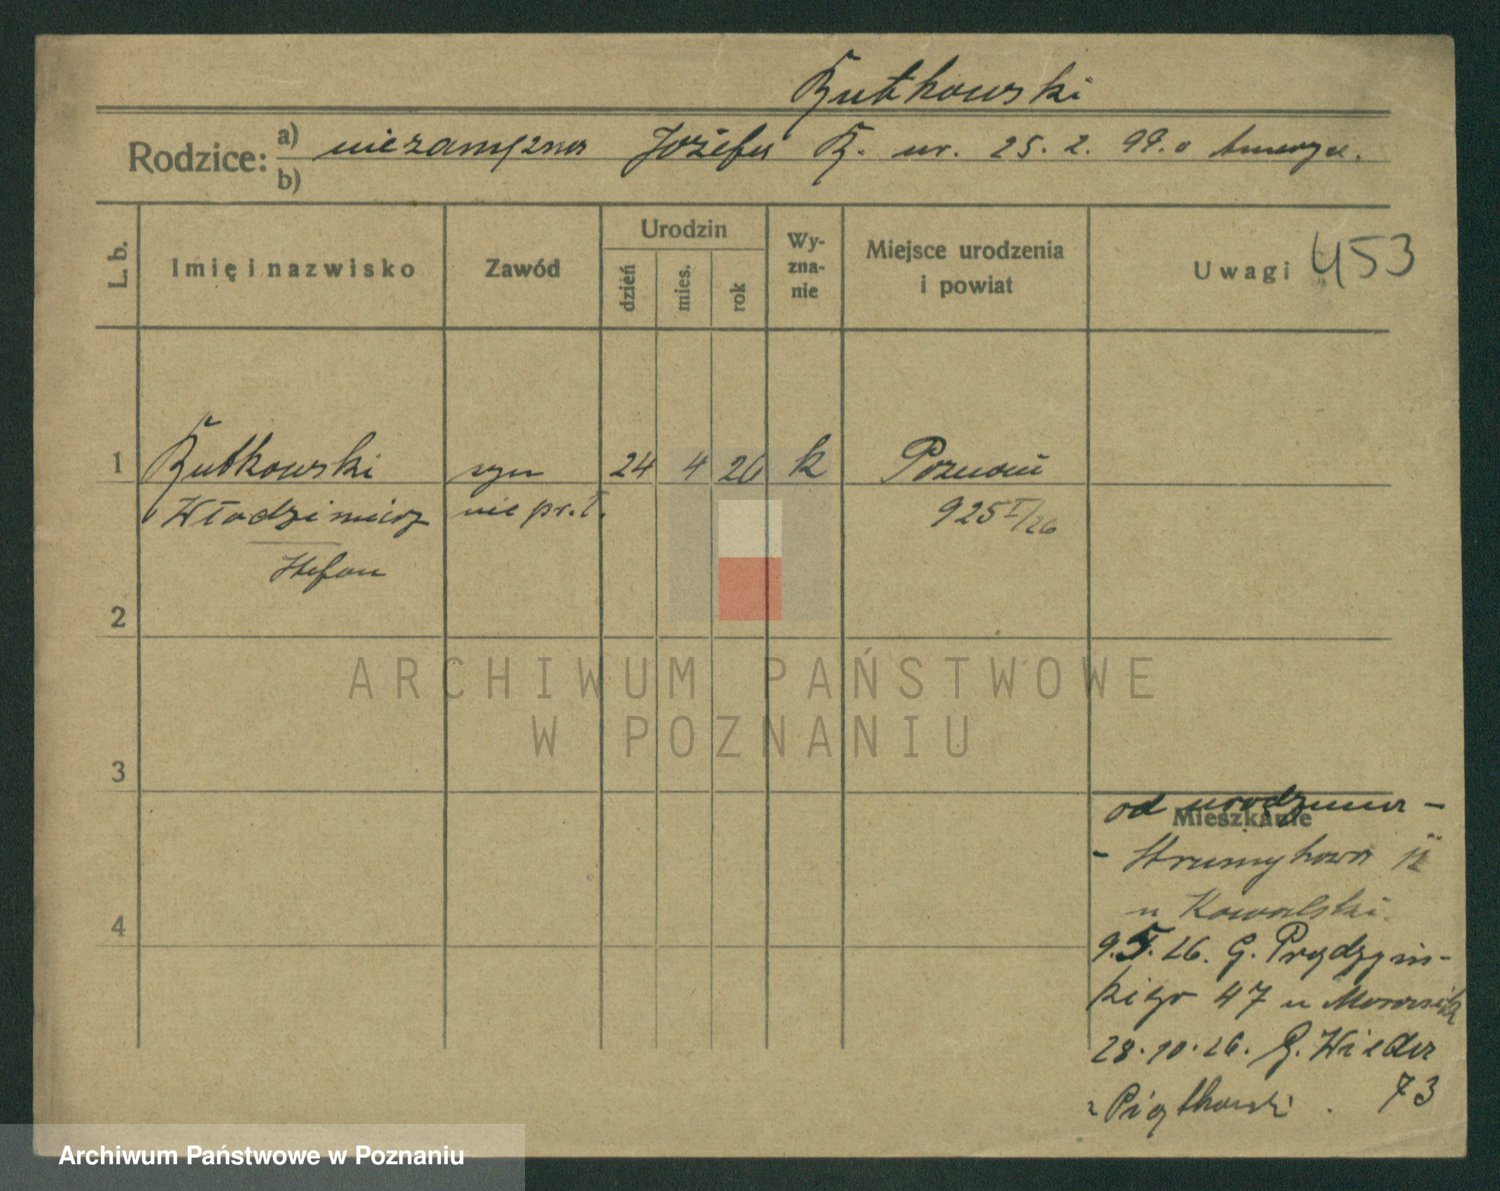 Rutkowski
Rodzice: a) niezamężna Józefa R. ur. 25. 2. 99. v Ameryce.
b)
L. b.
Imię i nazwisko
Zawód
Urodzin
dzień
mies.
rok
Wy-
zna-
nie
Miejsce urodzenia
i powiat
Uwagi 453
1 Rutkowski syn 24 4 26 k Poznań
Włodzimierz nie pr. ł. 925 I/26
Stefan
2
ARCHIWUM PAŃSTWOWE
W POZNANIU
3
od urodzenia -
Mieszkanie
- Strumykowa
u Kowalski
4
9.5.26. G. Prądzyńs-
kiego 47 u
28.10.26. G. Wilda
73
Piątkowski .
Archiwum Państwowe w Poznaniu